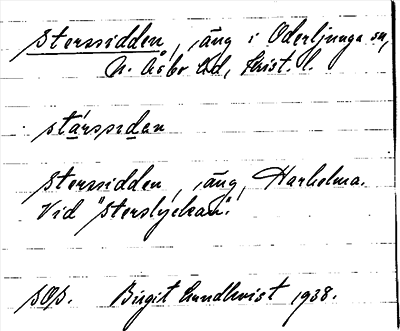 Stersidden, äng i Oderljunga sn,
N. Åsbo hd, Krist. l.
stärsidan
Stersidden, äng, Harholma.
Vid "Sterslyckan".
SOS. Birgit Lundkvist 1938.